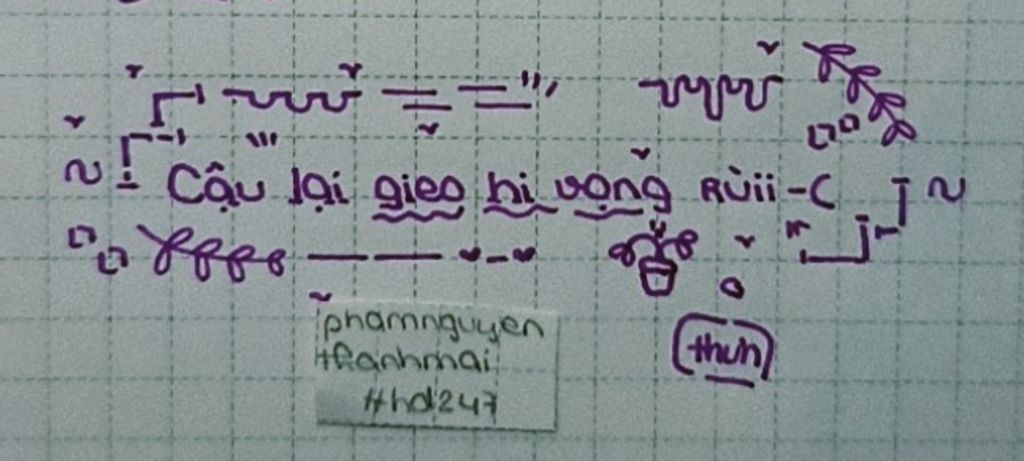 Cậu lại gieo hi vọng Rùii -C
phamnguyen
thanhmai
#hd247
thun